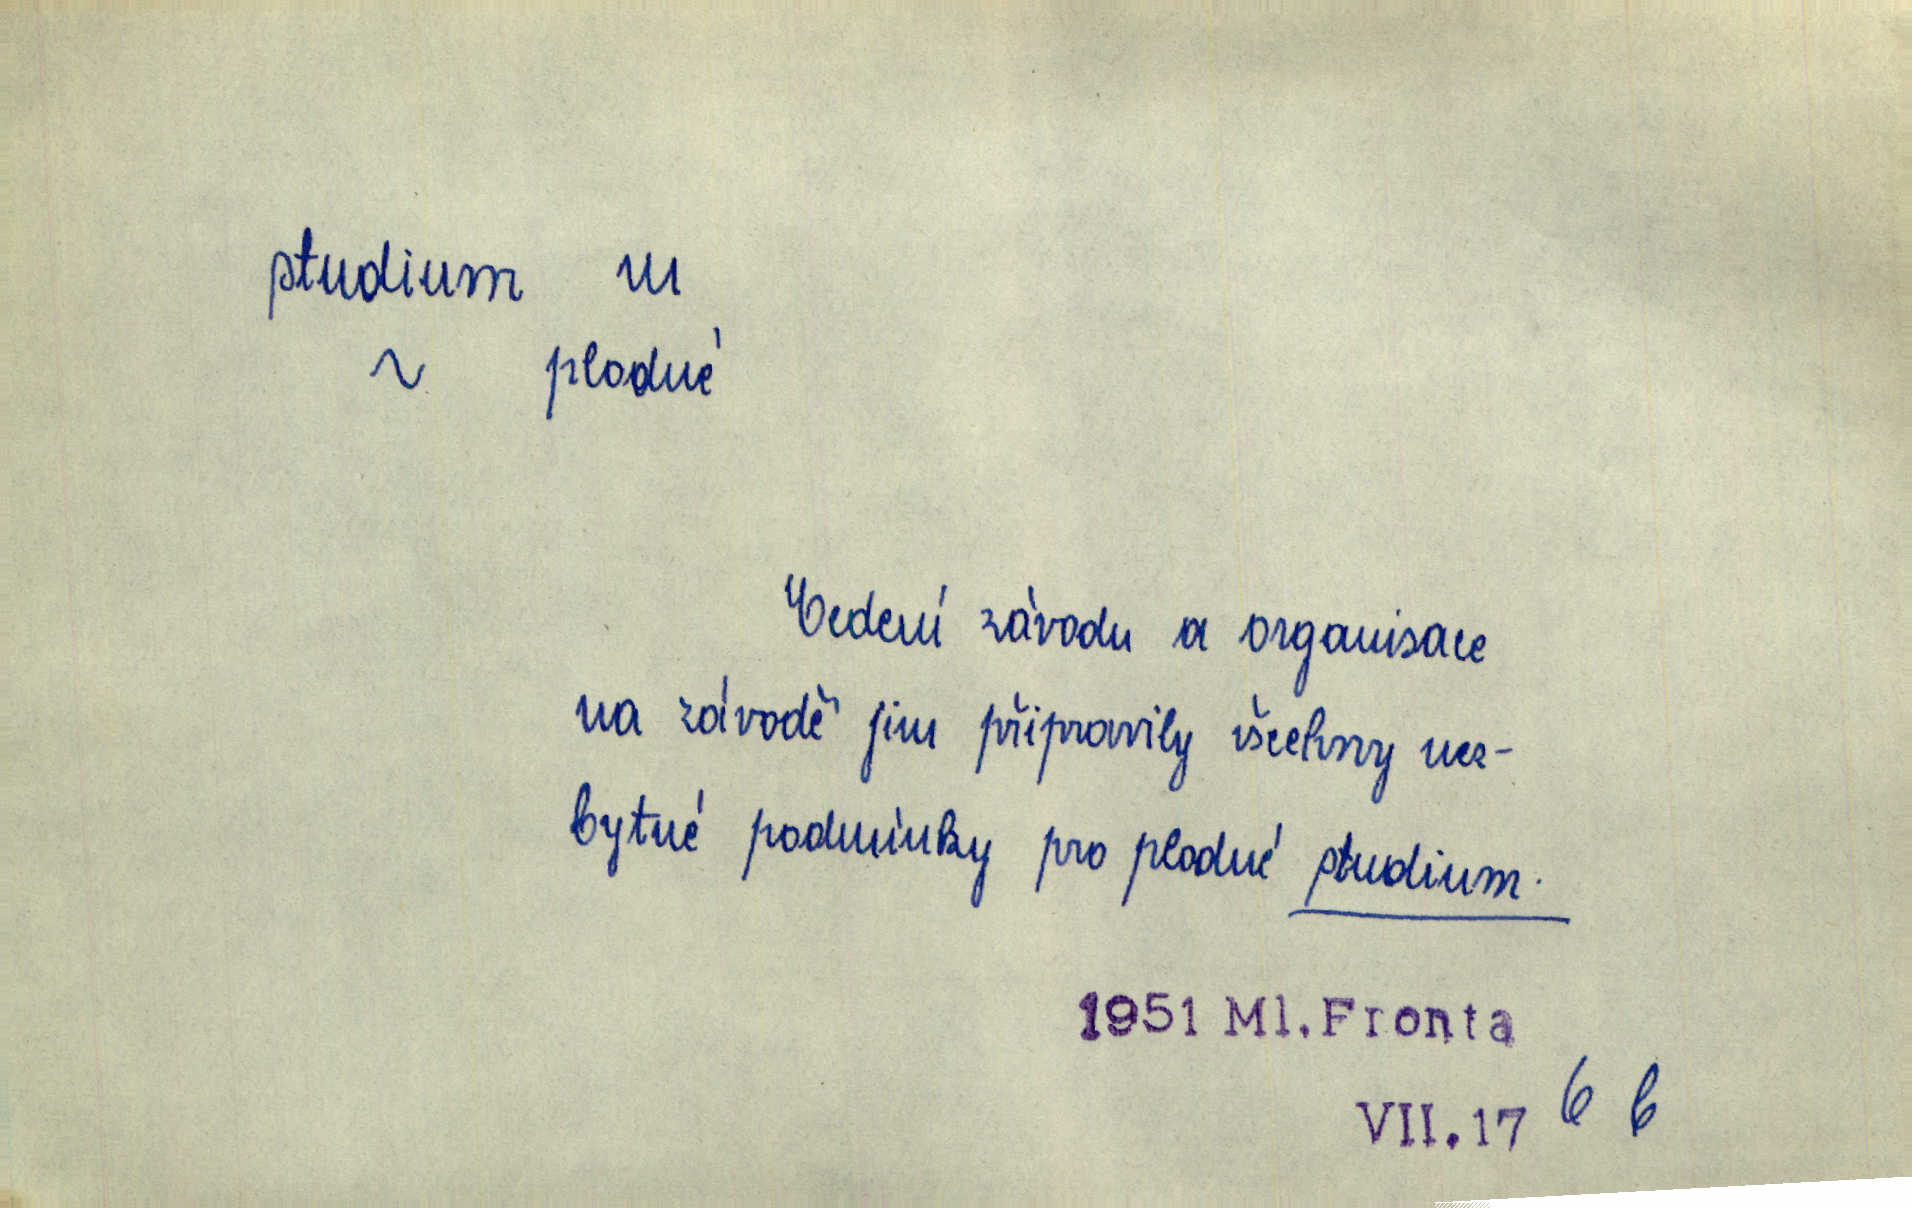 studium n
~ plodné
Vedení závodu a organisace
na závodě jim připravily všechny nez-
bytné podmínky pro plodné studium.
1951 Ml.Fronta
VII.17 6 b